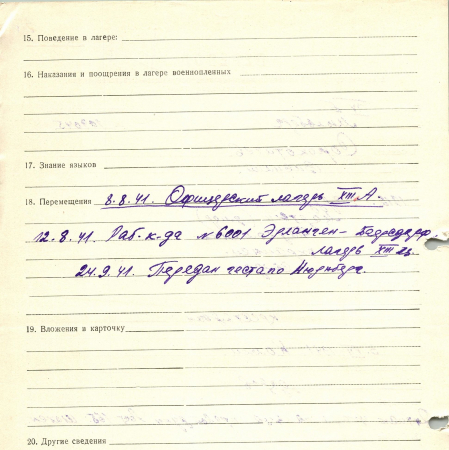 15. Поведение в лагере:
16. Наказания и поощрения в лагере военнопленных
17. Знание языков
18. Перемещения 8.8.41. Офицерский лагерь XIII А.
12.8.41. Раб-к-да №6001 Эрланген-
лагерь XIII
24.9.41. Передан гестапо Нюрнберг.
19. Вложения в карточку
20. Другие сведения